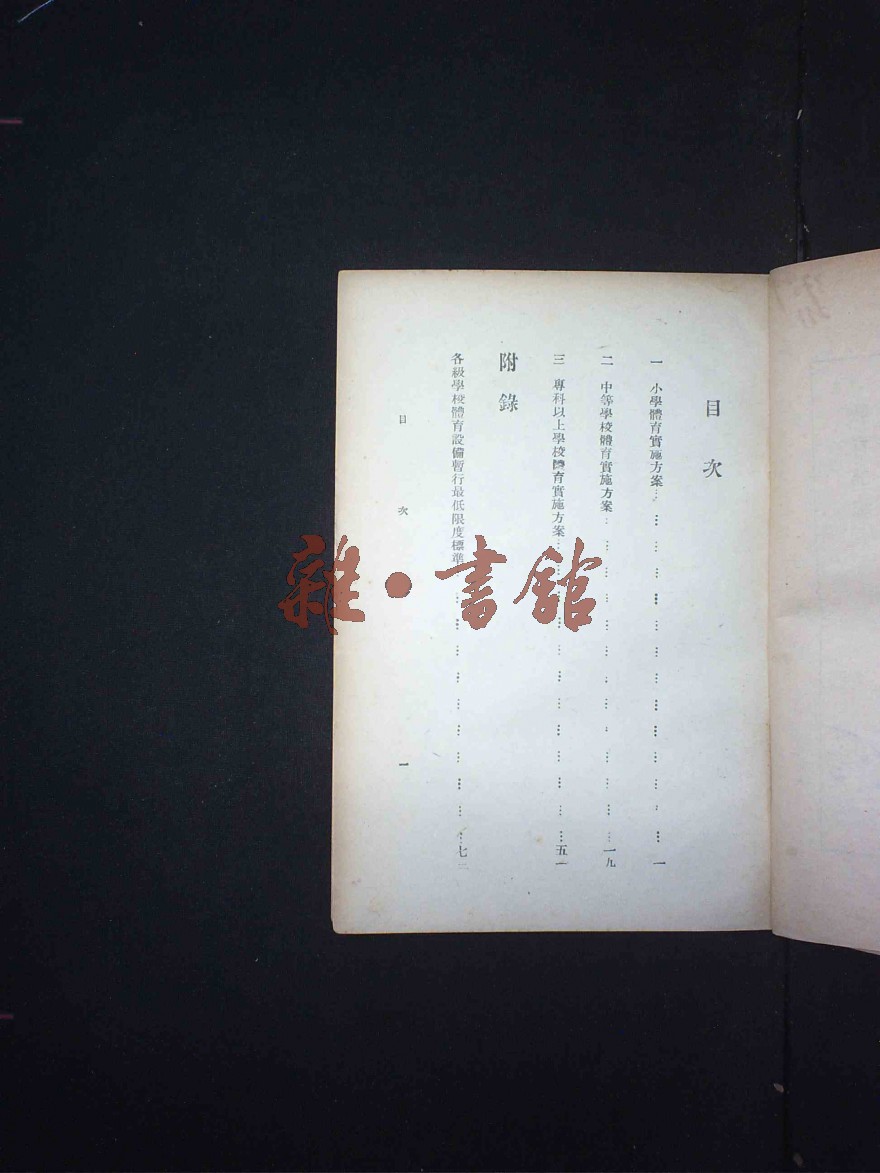 目次
一　小學體育實施方案……一
二　中等學校體育實施方案……一九
三　專科以上學校體育實施方案……五一
附錄
各級學校體育設備暫行最低限度標準……七
目次
一
雜·書館